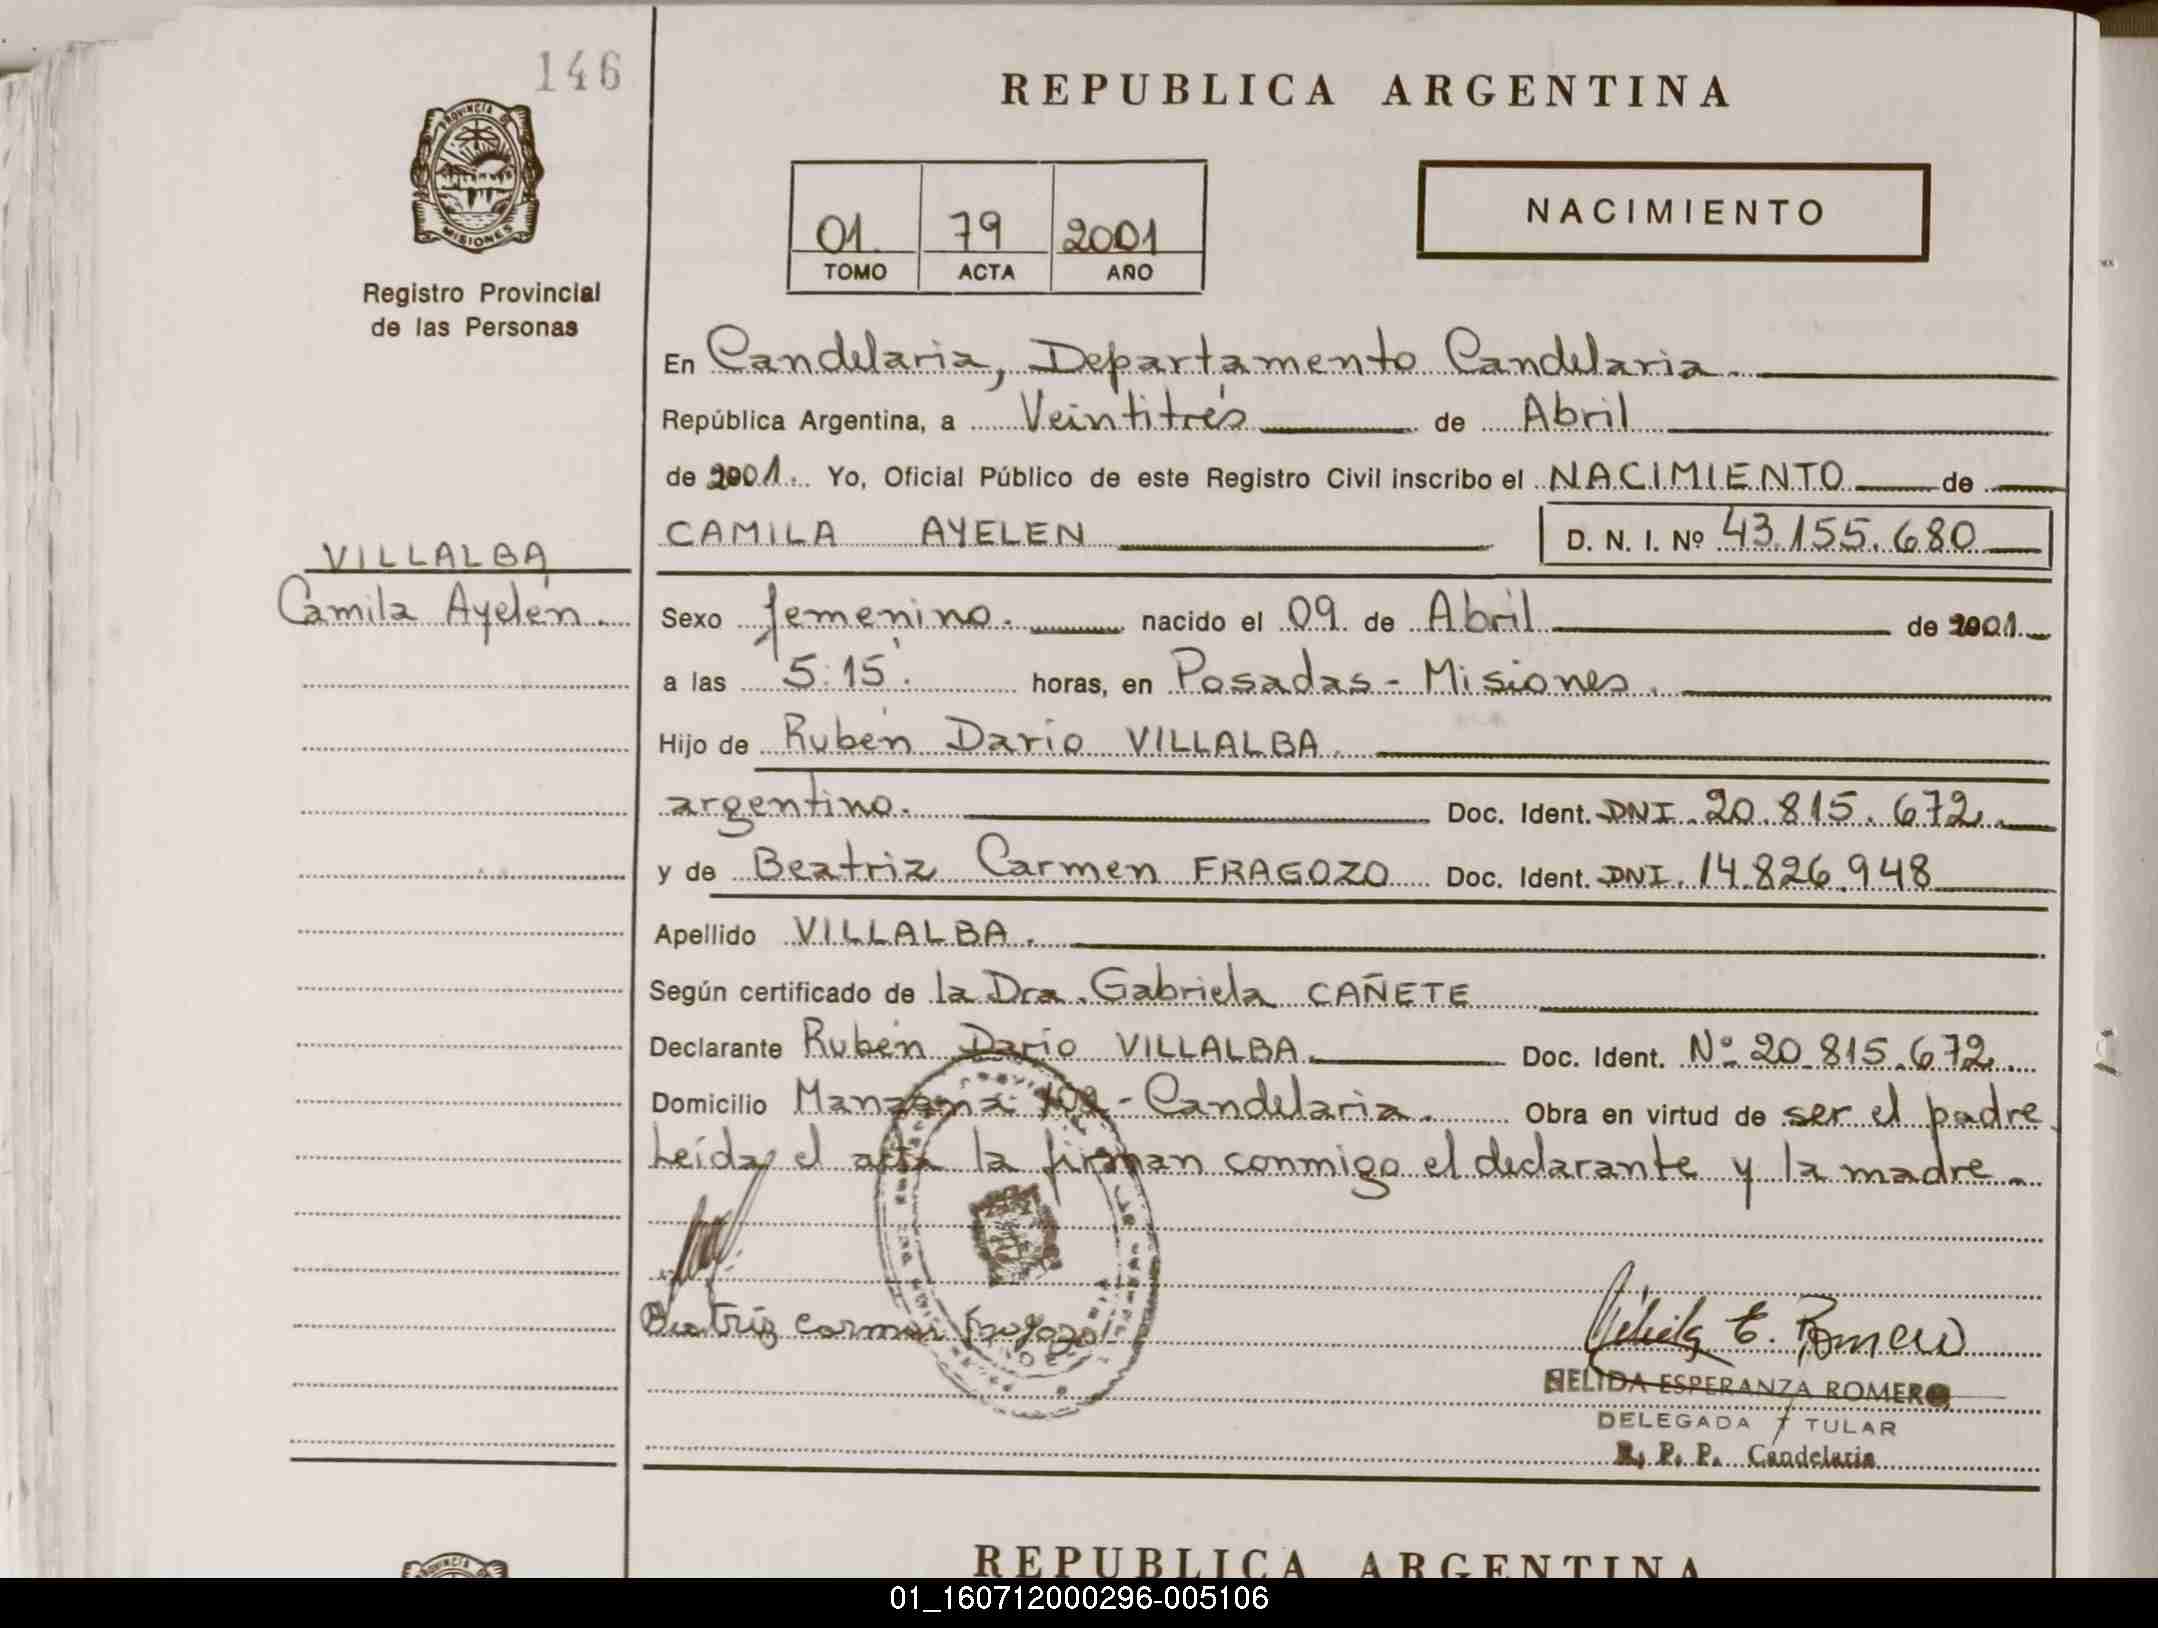 146
PROVINCIA DE
MISIONES
Registro Provincial
de las Personas
REPUBLICA ARGENTINA
01 79 2001
TOMO ACTA AÑO
NACIMIENTO
En Candelaria, Departamento Candelaria.
República Argentina, a Veintitrés de Abril
de 2001. Yo, Oficial Público de este Registro Civil inscribo el NACIMIENTO de
CAMILA AYELEN D. N. I. Nº 43.155.680
VILLALBA
Camila Ayelén.
Sexo femenino. nacido el 09 de Abril de 2001.
a las 5:15'. horas, en Posadas - Misiones.
Hijo de Rubén Darío VILLALBA.
argentino. Doc. Ident. DNI. 20.815.672.
y de Beatriz Carmen FRAGOZO Doc. Ident. DNI. 14.826.948
Apellido VILLALBA.
Según certificado de la Dra. Gabriela CAÑETE
Declarante Rubén Darío VILLALBA. Doc. Ident. Nº 20.815.672.
Domicilio Manzana - Candelaria. Obra en virtud de ser el padre.
Leída el acta la firman conmigo el declarante y la madre.
Beatriz Carmen Fragozo
Nélida E. Romero
NELIDA ESPERANZA ROMERO
DELEGADA TITULAR
R. P. P. Candelaria
PROVINCIA
REPUBLICA ARGENTINA
01_160712000296-005106